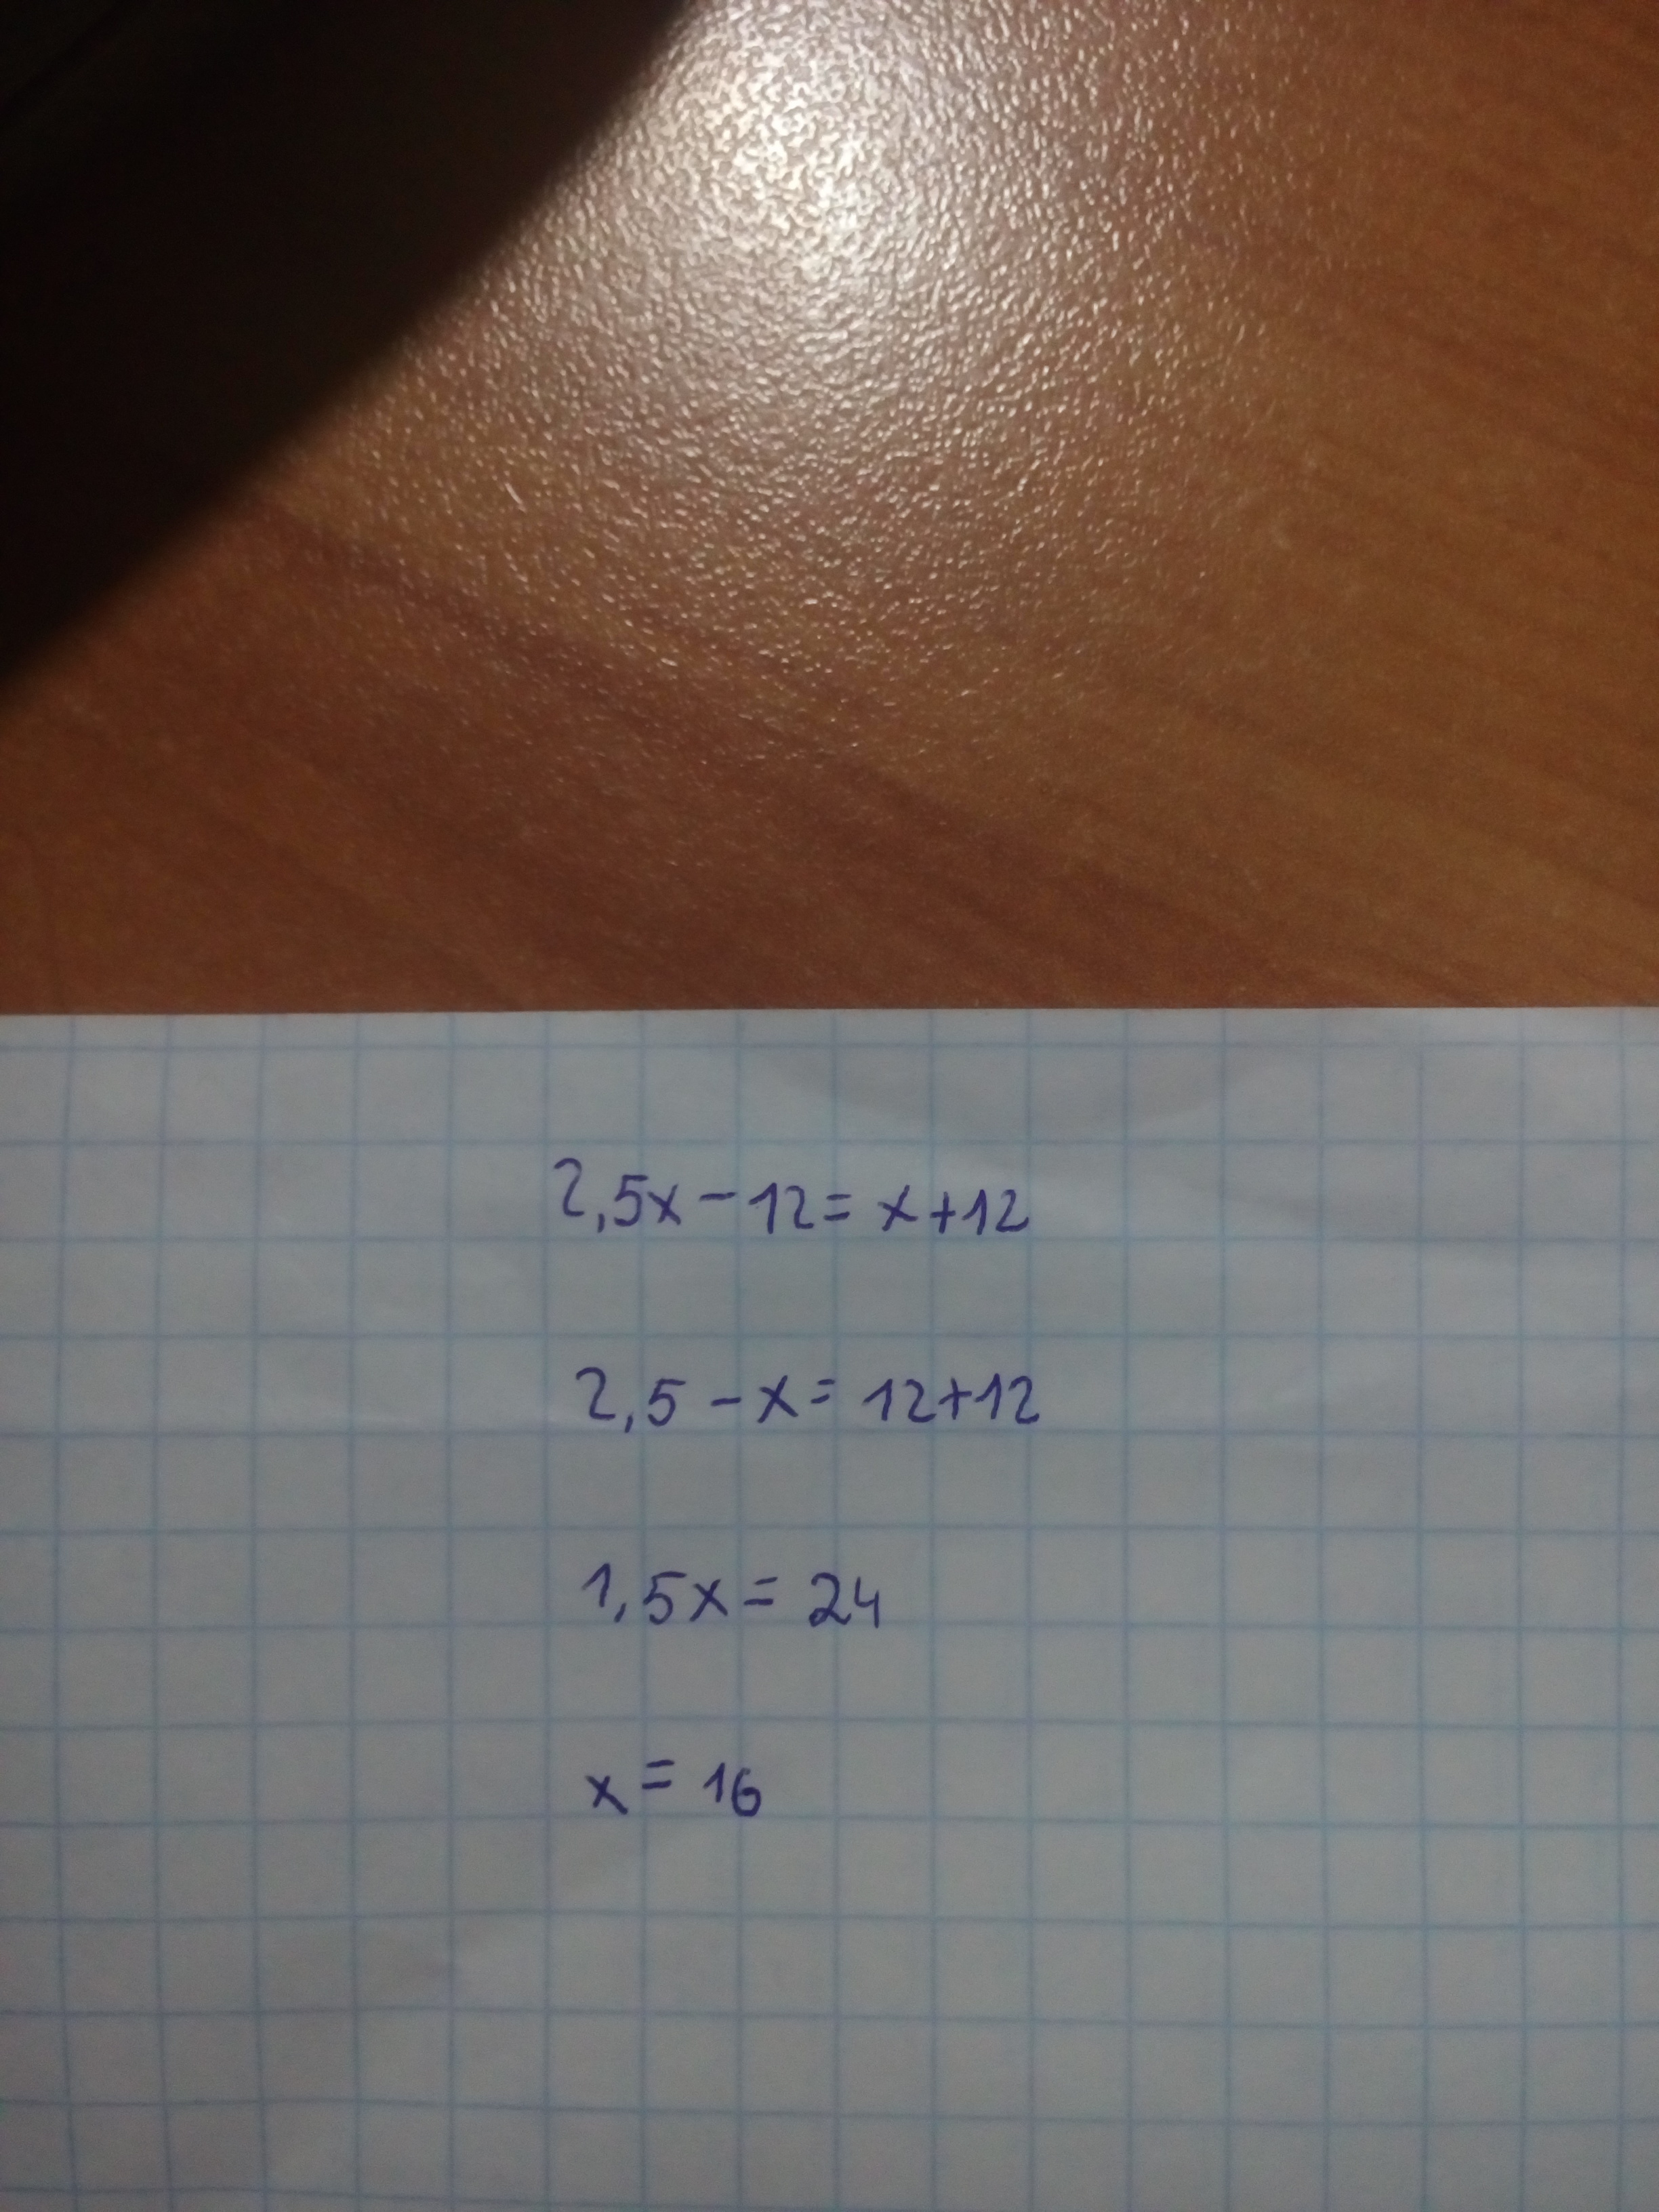 2,5x - 12 = x + 12
2,5 - x = 12 + 12
1,5x = 24
x = 16